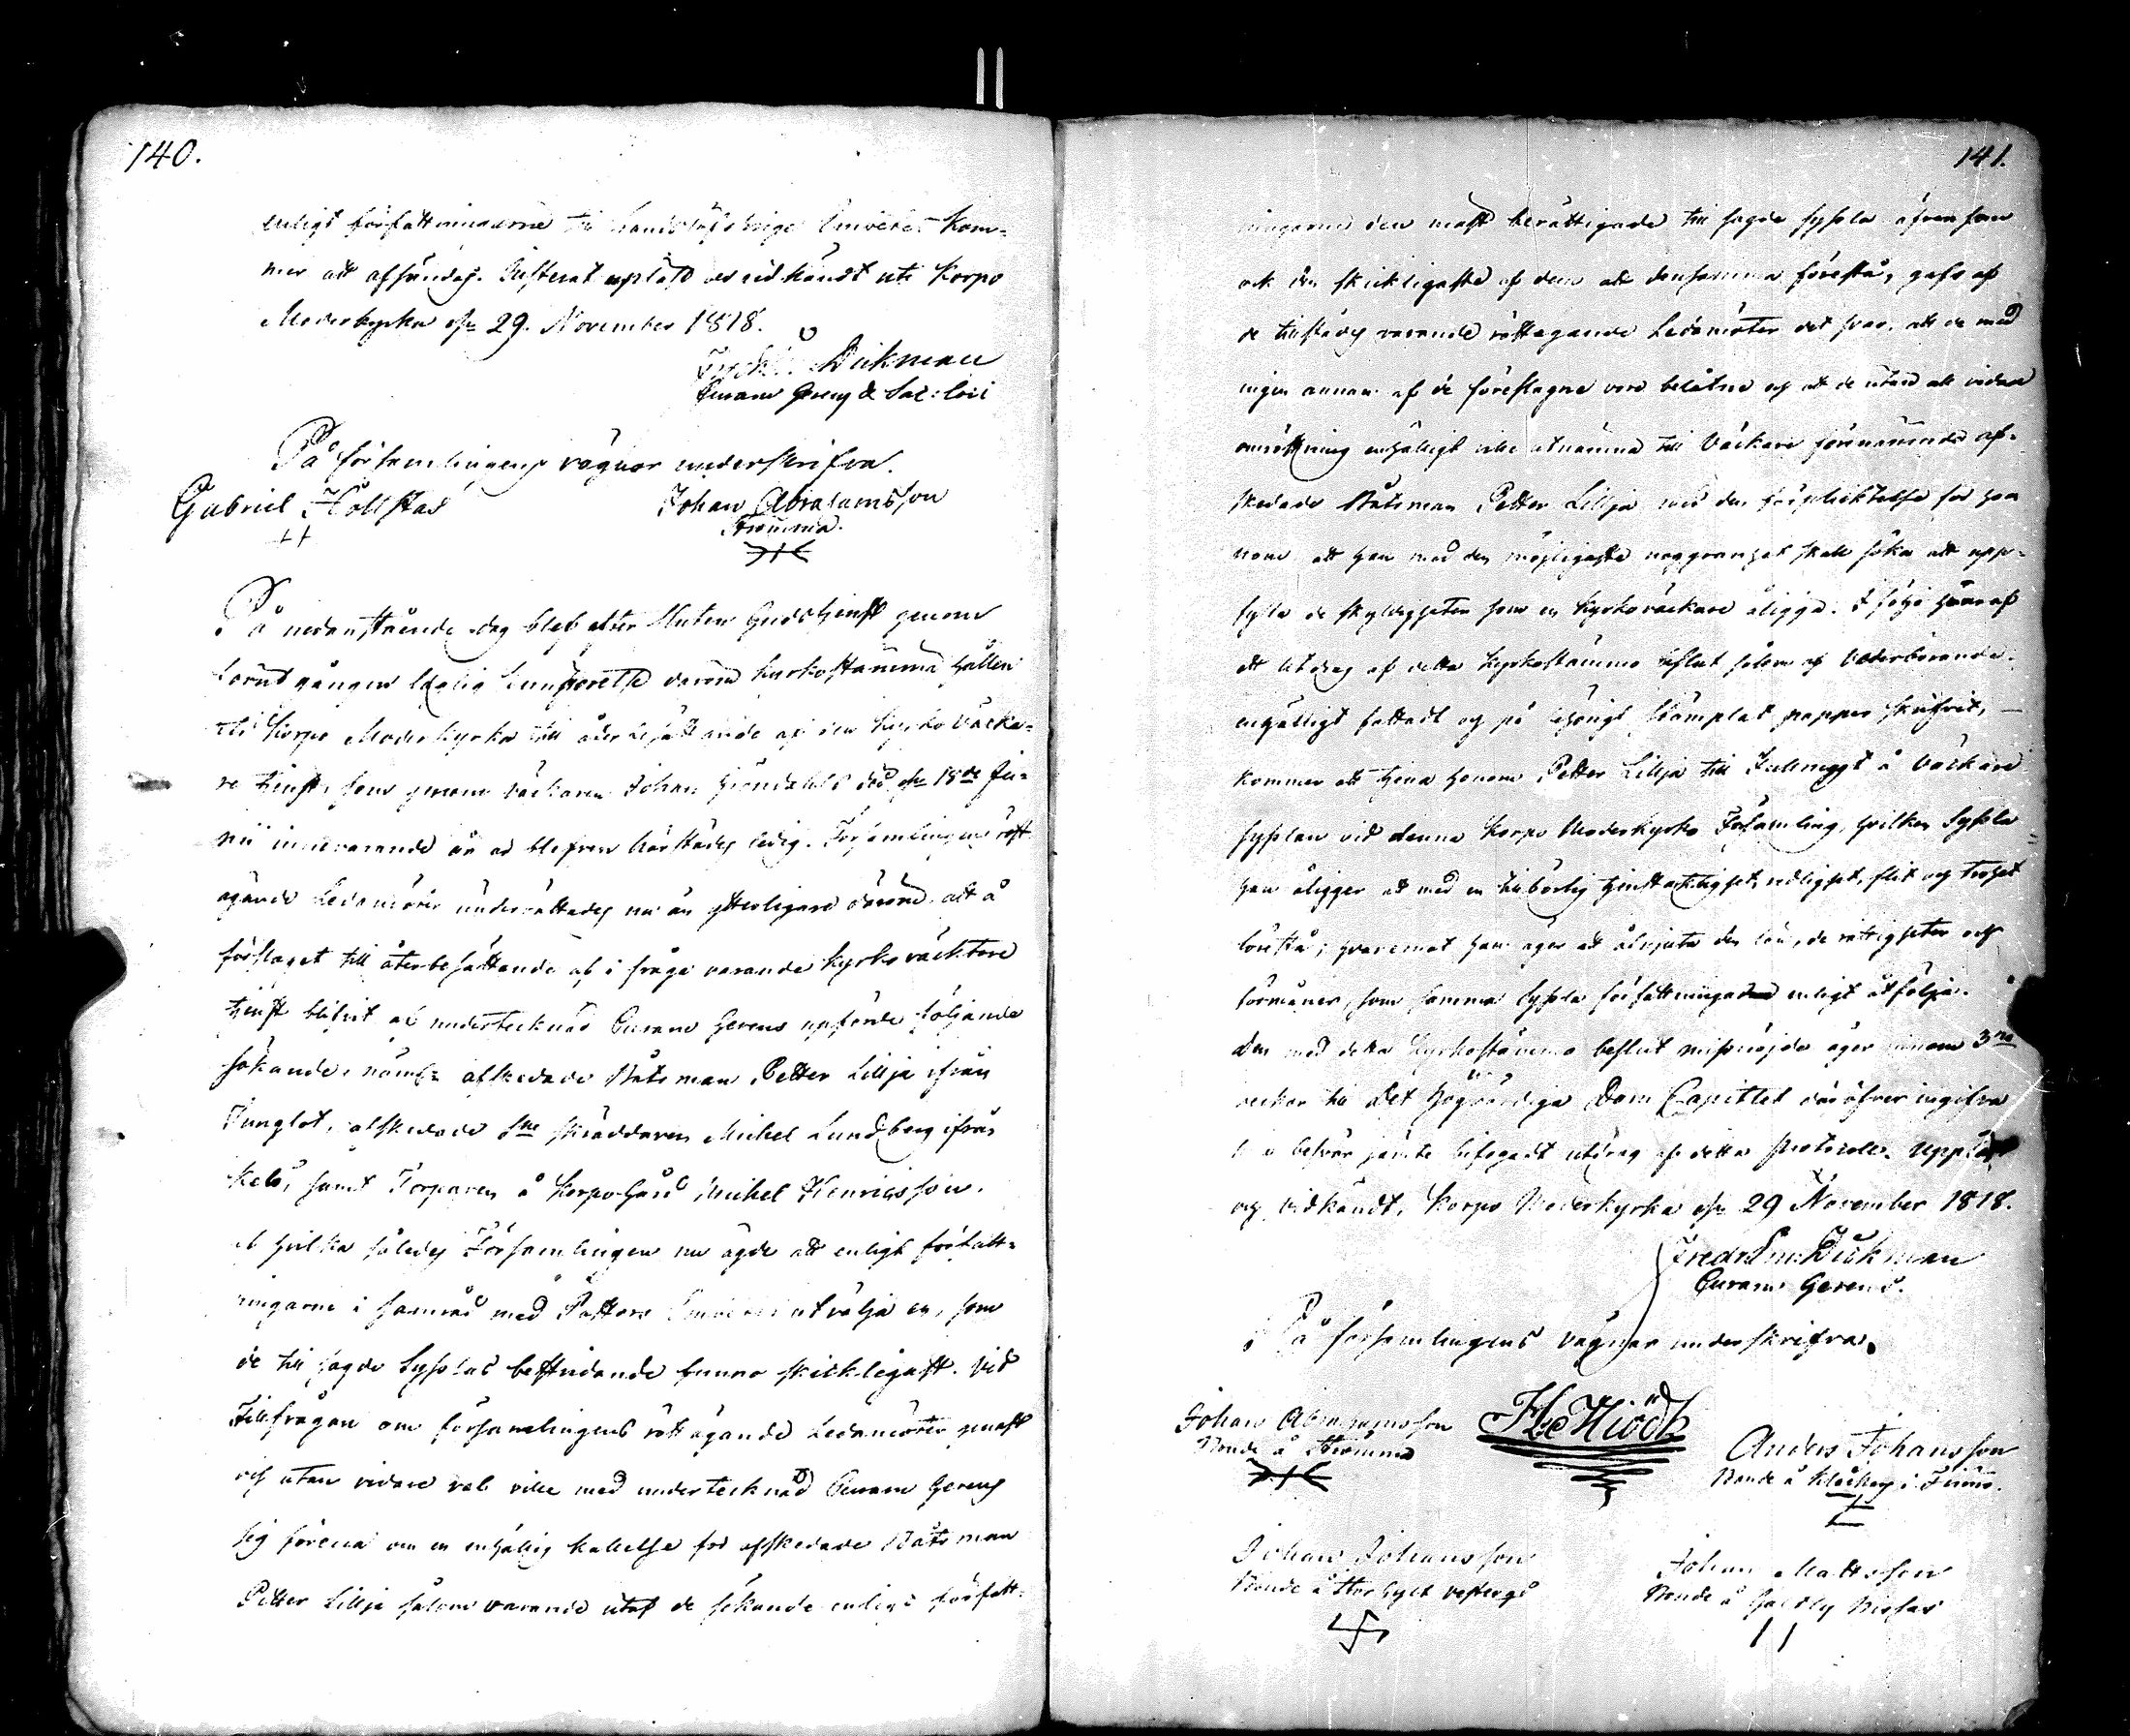 140.
enligt författningarne till
mer att afsändas. Justerat upläst och vidkändt uti Korpo
Moderkyrka den 29. November 1818.
Dickman
Curam Gerens & Sac: loci
På församlingens vägnar underskrifva.
Gabriel Hollstad Johan Abrahamsson
Strömma.
På nedanstående dag blef efter sluten Gudstjenst genom
förutgången laglig kungörelse derom kyrkostämma hållen
uti Korpo Moderkyrka till återbesättande af den kyrko väcka-
re tjenst, som genom väckaren Johan Gröndahls död den 18de Ju-
nii innevarande år är blefven härstädes ledig. Församlingens röst-
ägande Ledamöter underrättades nu än ytterligare derom, att å
förslaget till återbesättande af i fråga varande kyrko väcktare
tjenst blifvit af undertecknad Curam Gerens uppförde följande
sökande, näml: afskedade Båtsman Petter Lillja ifrån
Junglot, afskedade skräddaren Michel Lundberg ifrån
samt Torparen å Korpogård Michel Henricsson.
af hvilka således Församlingen nu ägde att enligt författ-
ningarne i samråd med Pastors Embetet utvälja en, som
de till sagde Sysslas bestridande funno skickligast. Vid
Tillfrågan om församlingens röstägande Ledamöter
och utan vidare val ville med undertecknad Curam Gerens
sig förena om en enhällig kallelse för afskedade Båtsman
Petter Lillja såsom varande utaf de sökande enligt författ-
141.
ningarne den mäst berättigade till sagde syssla äfvensom
ock den skickligaste af dem att densamma förestå, gafs af
de tillstädes varande röstägande Ledamöter det svar, att de med
ingen annan af de föreslagne voro belåtne och att de utan all vidare
omröstning enhälligt ville utnämna till Väckare förenämnde af-
skedade Båtsman Petter Lillja med den förpliktelse för ho-
nom att han med den möjligaste noggranhet skall söka att upp-
fylla de skyldigheter som en kyrkoväckare åligga. I följe hvaraf
ett utdrag af detta kyrkostämmo beslut såsom af Vederbörande
enhälligt fattadt och på behörigt stämplat papper skrifvit,
kommer att tjena honom Petter Lillja till Fullmagt å Väckare
sysslan vid denna Korpo Moderkyrko Församling, hvilken Syssla
han åligger att med en tillbörlig tjenstaktighet, redlighet, flit och trohet
förestå; hvaremot han äger att åtnjuta den lön, de rättigheter och
förmåner, som samma Syssla författningarne enligt åtfölja.
Den med detta Kyrkostämmo beslut missnöjde äger innom 3ne
veckor till Det Högvördiga Dom Capitlet däröfver ingifva
sina besvär jämte bifogadt utdrag af detta Protocoll. Uppläst
och vidkändt, Korpo Moderkyrka den 29 November 1818.
Fredr Em: Dickman
Curam Gerens.
På församlingens vägnar underskrifva.
Johan Abrahamsson
Bonde å Strömma
Anders Johansson
Bonde å i
Johan Johansson
Bonde å
Johan Mattsson
Bonde å